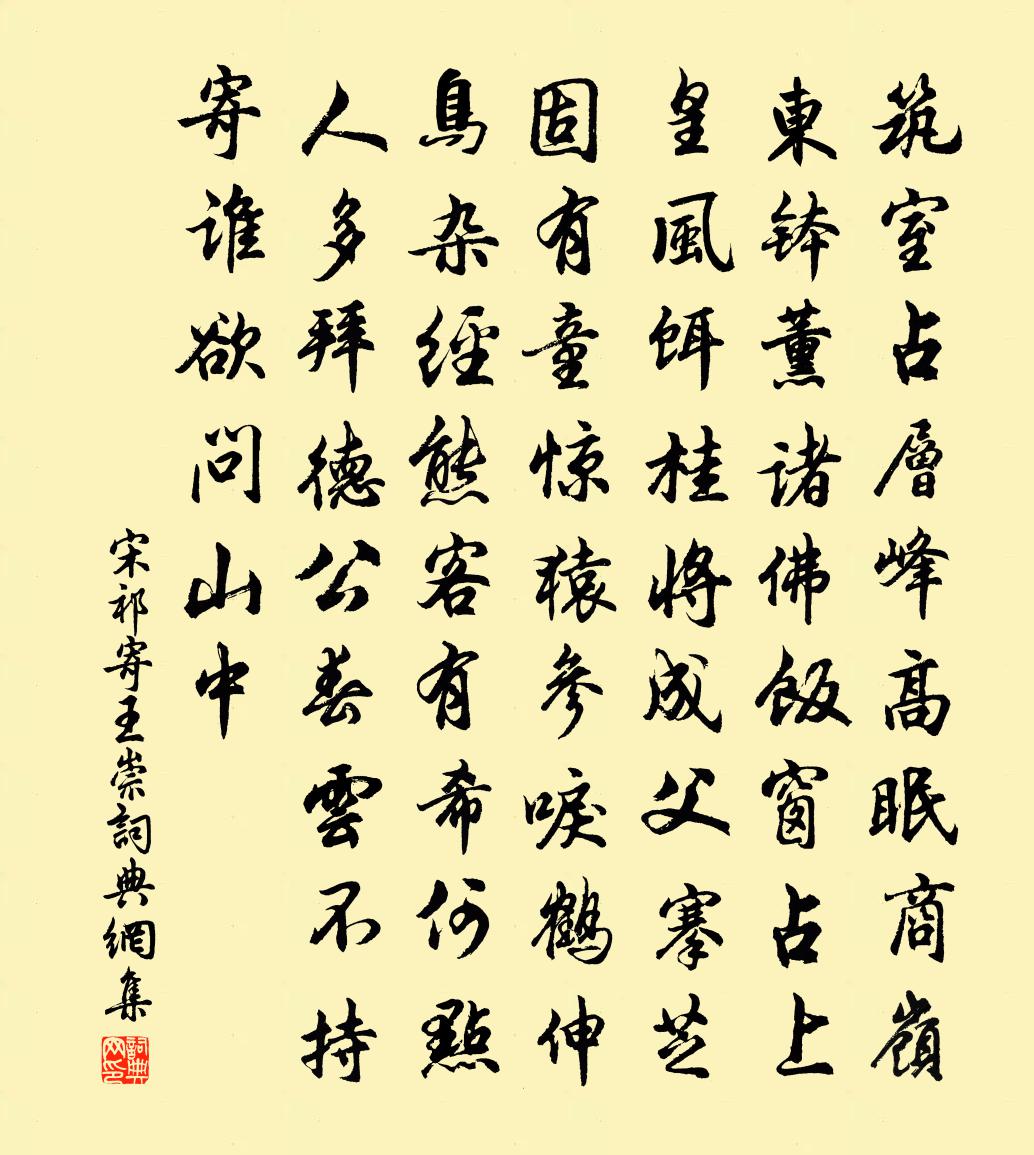 筑室占層峰高眠商嶺
東鉢薰诸佛飯窗占上
皇風餌桂將成父搴芝
固有童惊猿參唳鶴伸
鳥杂經熊客有希何點
人多拜德公春雲不持
寄谁欲問山中
宋祁寄王崇詞典網集
詞典网印